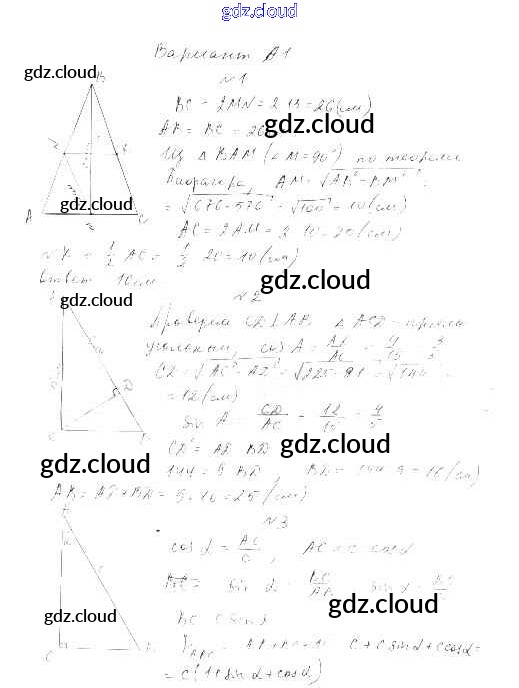 gdz.cloud
Вариант А1
gdz.cloud
№1
B
BC = 2MN = 2 · 13 = 26 (см)
AB = BC = 26
gdz.cloud
Из △ BAM (∠M = 90°) по теореме
Пифагора, AM = √AB² - BM² =
gdz.cloud
= √676 - 576 = √100 = 10 (см)
A C
AC = 2AM = 2 · 10 = 20 (см)
NK = 1/2 AC = 1/2 · 20 = 10 (см)
Ответ 10 см
gdz.cloud
№2
gdz.cloud
CD ⊥ AB, △ ACD - прямо
угольный, cos A = AD/AC = 9/15 = 3/5
CD = √AC² - AD² = √225 - 81 = √144 =
= 12 (см)
D
sin A = CD/AC = 12/15 = 4/5
C
CD² = AD · BD
gdz.cloud
gdz.cloud
144 = 9 · BD BD = 144 : 9 = 16 (см)
AB = AD + BD = 9 + 16 = 25 (см)
№3
cos α = AC/c, AC = c · cos α
sin α = BC/AB sin α = BC/c
gdz.cloud
gdz.cloud
BC = c sin α
C B
P ABC = c + c sin α + c cos α =
= c (1 + sin α + cos α)